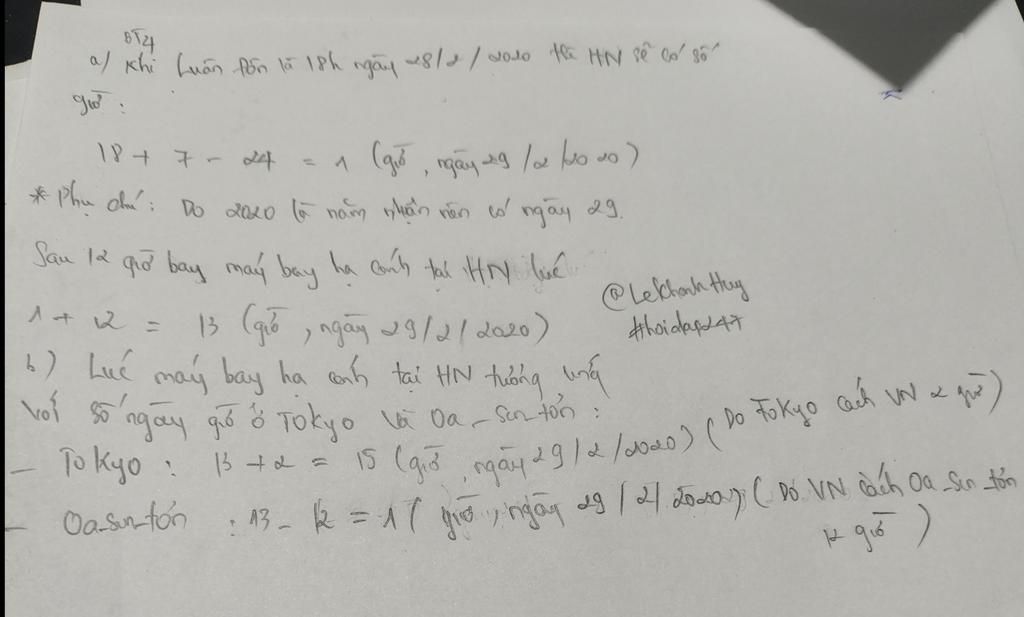 BT4
a) Khi Luân Đôn là 18h ngày 28/2/2020 thì HN sẽ có số
giờ:
18 + 7 - 24 = 1 (giờ, ngày 29/2/2020)
* Phụ chú: Do 2020 là năm nhuận nên có ngày 29.
Sau 12 giờ bay máy bay hạ cánh tại HN lúc
1 + 12 = 13 (giờ, ngày 29/2/2020)
@LeKhanhHuy
#hoidap247
b) Lúc máy bay hạ cánh tại HN tương ứng
với số ngày giờ ở Tokyo và Oa-sin-tơn:
- Tokyo: 13 + 2 = 15 (giờ, ngày 29/2/2020) (Do Tokyo cách VN 2 giờ)
- Oa-sin-tơn: 13 - 12 = 1 (giờ, ngày 29/2/2020) (Do VN cách Oa-sin-tơn
12 giờ)